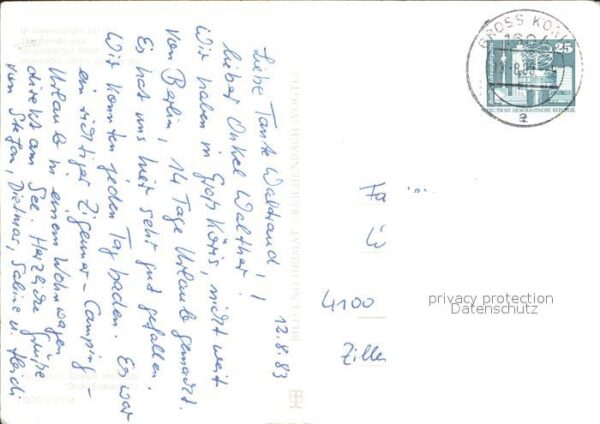 12.8.83
Liebe Tante Waltraud!
lieber Onkel Walther!
Wir haben in Groß Köris, nicht weit
von Berlin, 14 Tage Urlaub gemacht.
Es hat uns hier sehr gut gefallen.
Wir konnten jeden Tag baden. Es war
ein richtiger Zigeuner-Camping-
Urlaub in einem Wohnwagen
direkt am See. Herzliche Grüße
von Stefan, Dietmar, Sabine u. Heidi
GROSS KÖRIS
25
DEUTSCHE DEMOKRATISCHE REPUBLIK
Fa
4100
Zille
privacy protection
Datenschutz